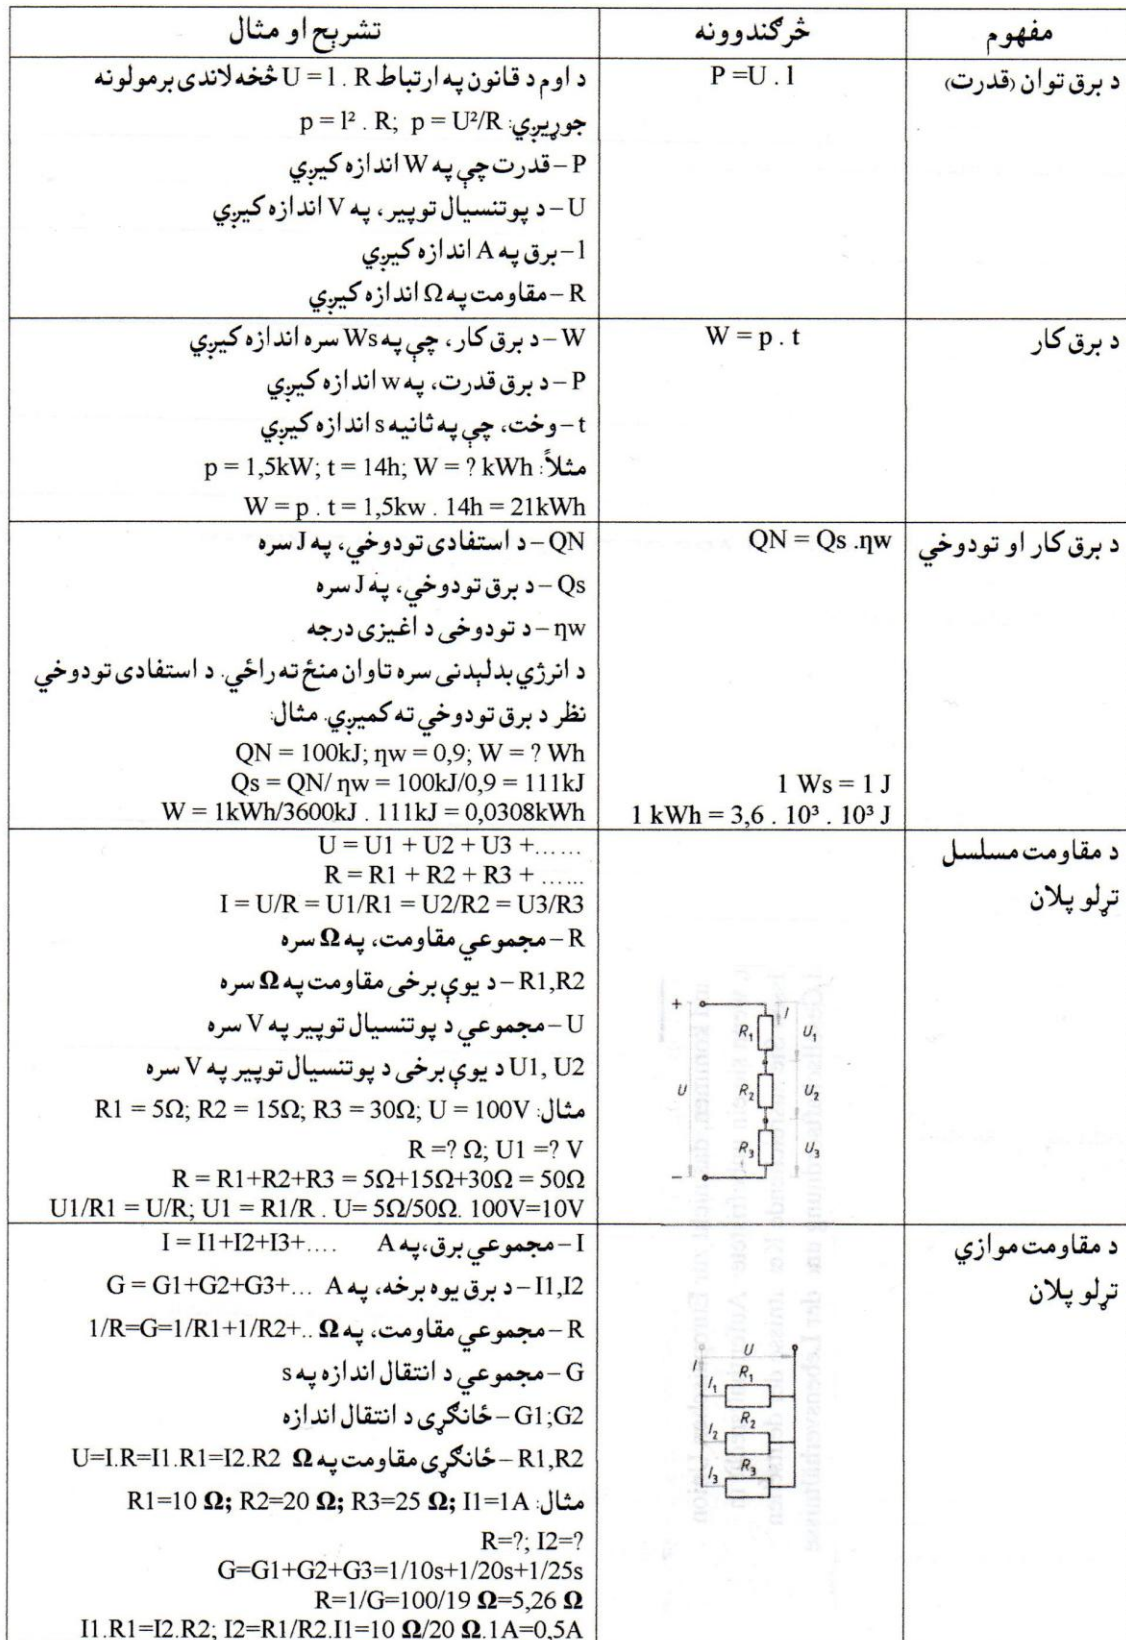 مفهوم
څرګندوونه
تشریح او مثال
د برق توان (قدرت)
P =U . l
د اوم د قانون په ارتباط U = l . R څخه لاندی برمولونه
جوړیږي: p = l² . R; p = U²/R
P – قدرت چې په W اندازه کیږي
U – د پوتنسیال توپیر، په V اندازه کیږي
l – برق په A اندازه کیږي
R – مقاومت په Ω اندازه کیږي
د برق کار
W = p . t
W – د برق کار، چې په Ws سره اندازه کیږي
P – د برق قدرت، په w اندازه کیږي
t – وخت، چې په ثانیه s اندازه کیږي
مثلاً: p = 1,5kW; t = 14h; W = ? kWh
W = p . t = 1,5kw . 14h = 21kWh
د برق کار او تودوخي
QN = Qs .ηw
1 Ws = 1 J
1 kWh = 3,6 . 10³ . 10³ J
QN – د استفادی تودوخي، په J سره
Qs – د برق تودوخي، په J سره
ηw – د تودوخی د اغیزی درجه
د انرژي بدلېدنی سره تاوان منځ ته راځي. د استفادی تودوخي
نظر د برق تودوخي ته کمیږي. مثال:
QN = 100kJ; ηw = 0,9; W = ? Wh
Qs = QN/ ηw = 100kJ/0,9 = 111kJ
W = 1kWh/3600kJ . 111kJ = 0,0308kWh
د مقاومت مسلسل
تړلو پلان
+
I
R₁
U₁
U
R₂
U₂
R₃
U₃
–
U = U1 + U2 + U3 +……
R = R1 + R2 + R3 + ……
I = U/R = U1/R1 = U2/R2 = U3/R3
R – مجموعي مقاومت، په Ω سره
R1,R2 – د یوې برخی مقاومت په Ω سره
U – مجموعي د پوتنسیال توپیر په V سره
U1, U2 د یوې برخی د پوتنسیال توپیر په V سره
مثال: R1 = 5Ω; R2 = 15Ω; R3 = 30Ω; U = 100V
R =? Ω; U1 =? V
R = R1+R2+R3 = 5Ω+15Ω+30Ω = 50Ω
U1/R1 = U/R; U1 = R1/R . U= 5Ω/50Ω. 100V=10V
د مقاومت موازي
تړلو پلان
U
I
I₁
R₁
I₂
R₂
I₃
R₃
I – مجموعي برق،په A I = I1+I2+I3+….
I1,I2 – د برق یوه برخه، په A G = G1+G2+G3+…
R – مجموعي مقاومت، په Ω 1/R=G=1/R1+1/R2+..
G – مجموعي د انتقال اندازه په s
G1;G2 – ځانګړی د انتقال اندازه
R1,R2 – ځانګړی مقاومت په Ω U=I.R=I1.R1=I2.R2
مثال: R1=10 Ω; R2=20 Ω; R3=25 Ω; I1=1A
R=?; I2=?
G=G1+G2+G3=1/10s+1/20s+1/25s
R=1/G=100/19 Ω=5,26 Ω
I1.R1=I2.R2; I2=R1/R2.I1=10 Ω/20 Ω.1A=0,5A